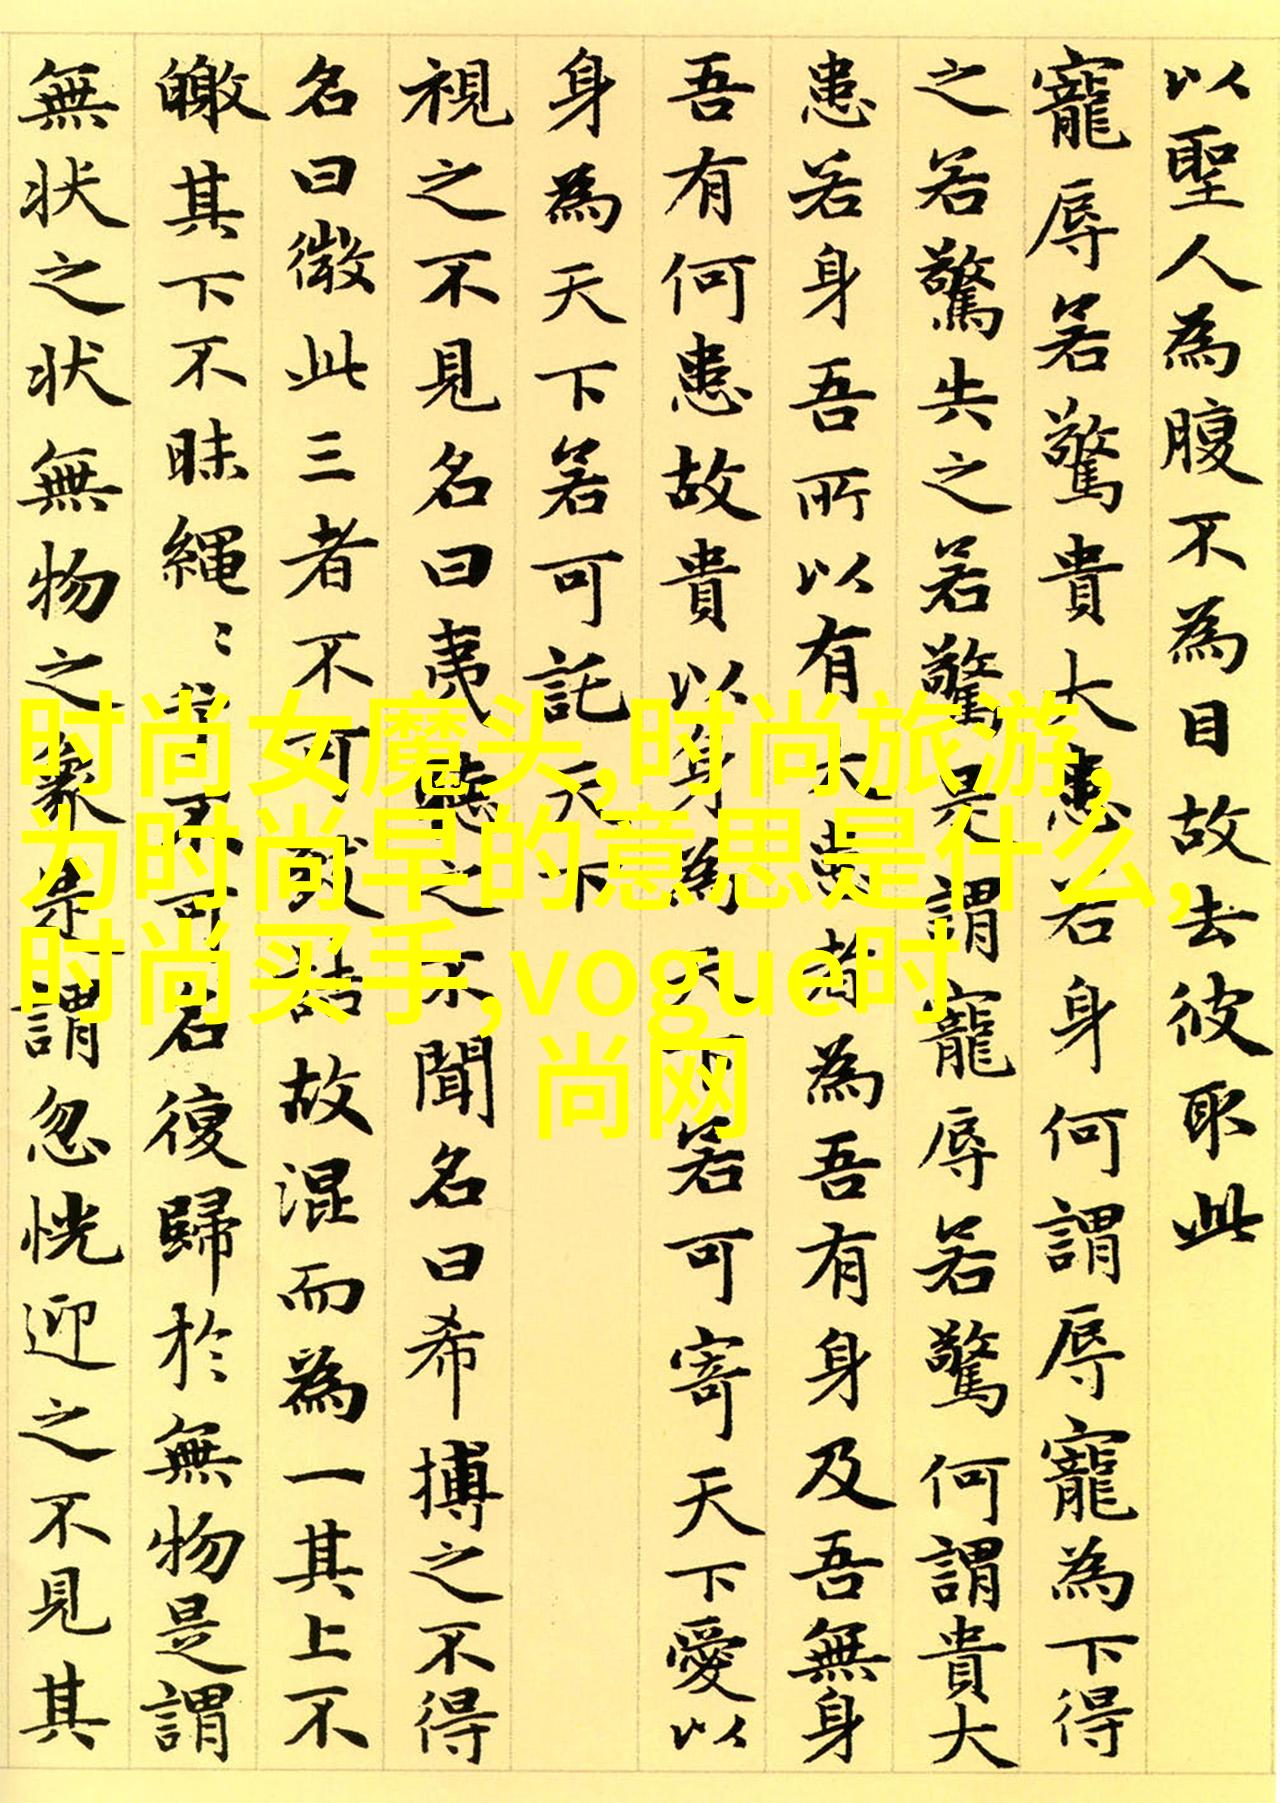 以聖人為腹不為目故去彼取此
寵辱若驚貴大患若身何謂辱寵為下得
之若驚失之若驚是謂寵辱若驚何謂貴大
患若身吾所以有大患者為吾有身及吾無身
吾有何患故貴以身為天下若可寄天下愛以
身為天下若可託天下
視之不見名曰夷聽之不聞名曰希搏之不得
名曰微此三者不可致詰故混而為一其上不
皦其下不昧繩〻兮不可名復歸於無物是謂
無状之状無物之象是謂忽恍迎之不見其
时尚女魔头,时尚旅游,
为时尚早的意思是什么,
时尚买手,vogue时
尚网